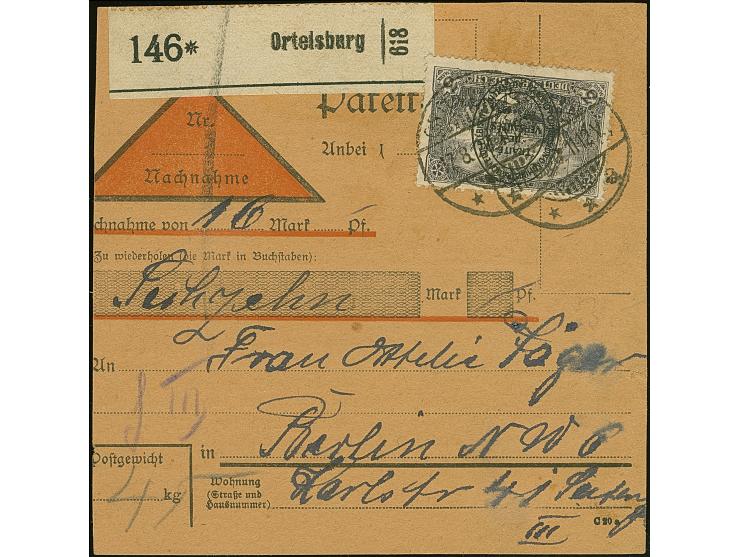 146* Ortelsburg 618
Paket
Nr. Anbei
Nachnahme
chnahme von 16 Mark Pf.
Zu wiederholen (die Mark in Buchstaben):
Sechzehn Mark Pf.
An Frau Ottilie Jäger
III
Postgewicht in Berlin N W 6
45 kg Wohnung (Straße und Hausnummer) Karlstr 41
III C 20 a